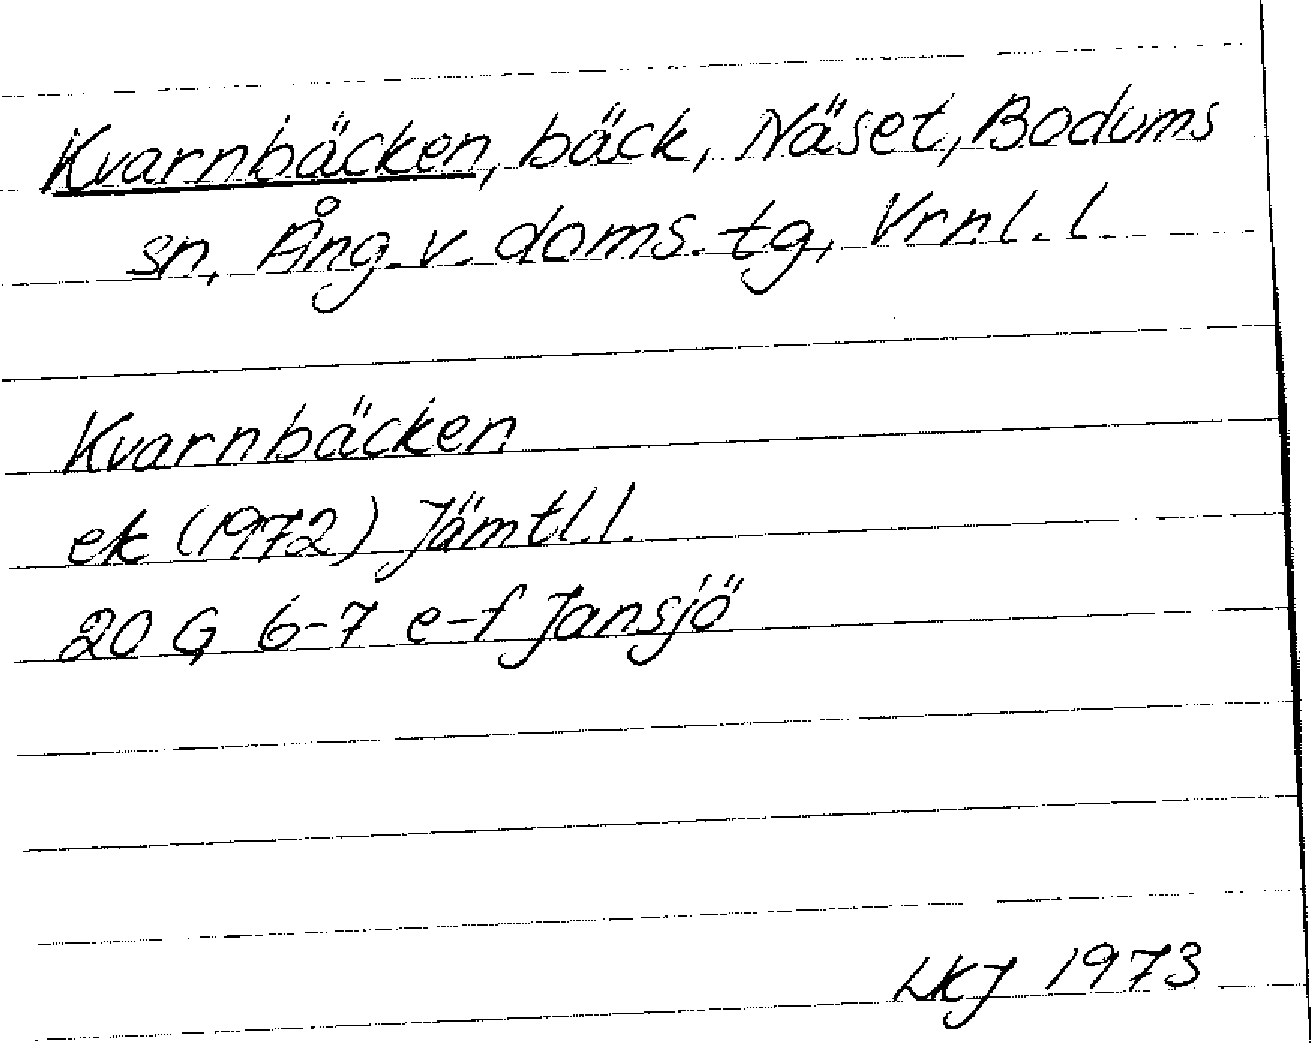 Kvarnbäcken, bäck, Näset, Bodums
sn, Ång. v. doms. tg, Vrnl. l.
Kvarnbäcken
ek (1972) Jämtl. l.
20 G 6-7 e-f Jansjö
LKJ 1973